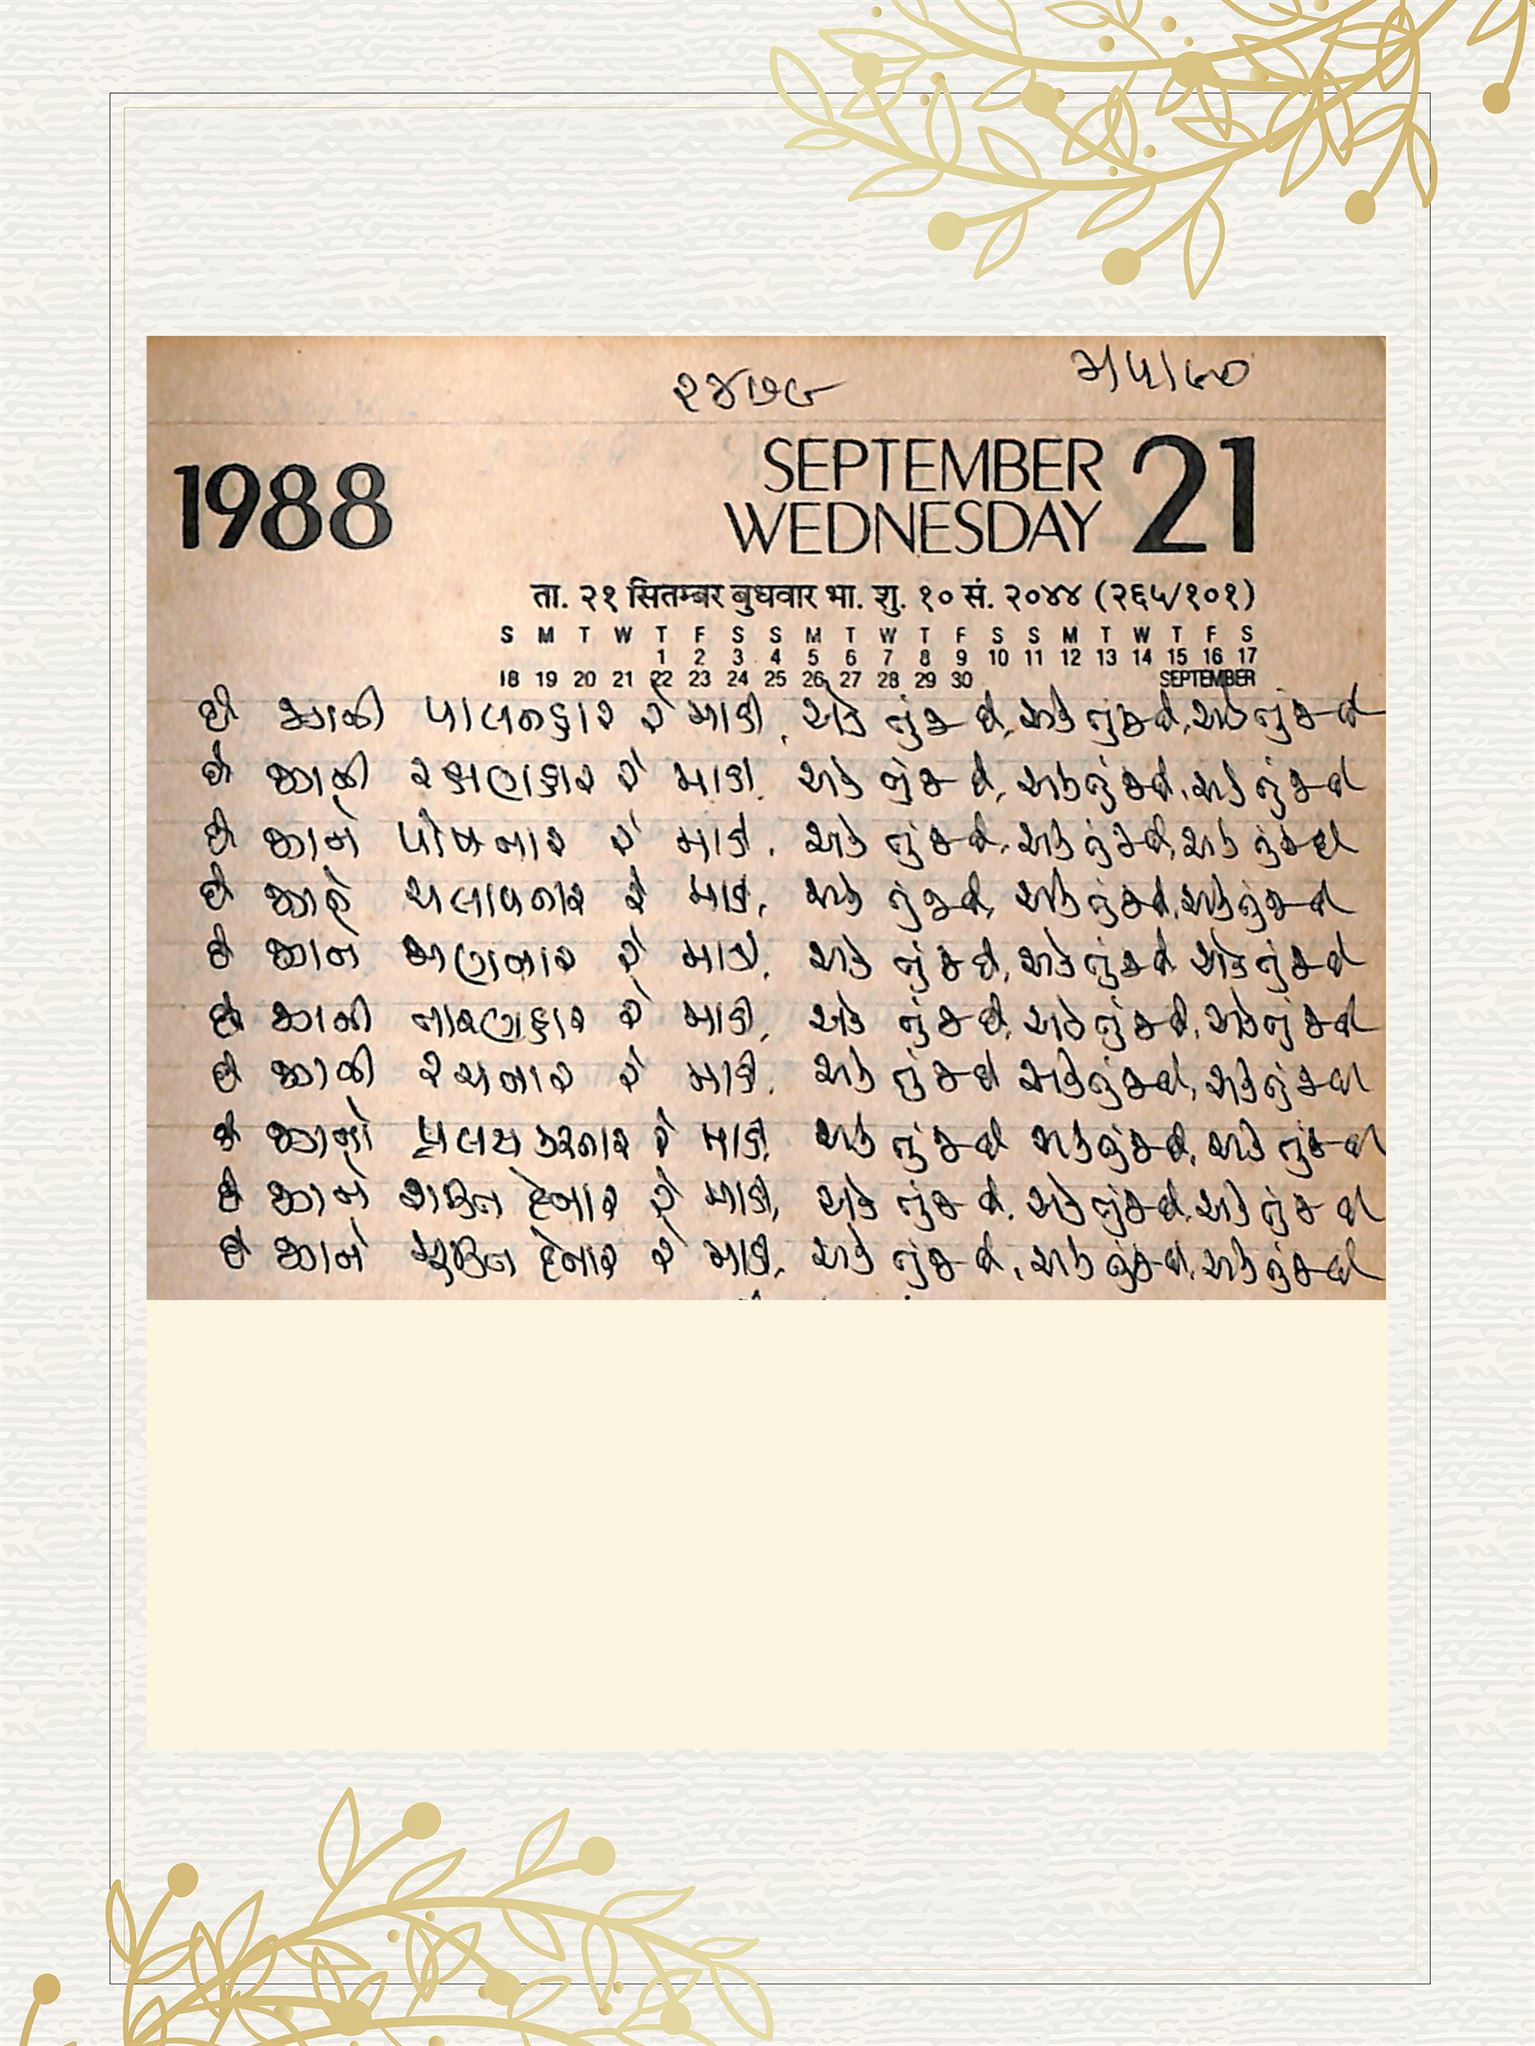 ૨૪૭૯ ૨/૫/૯૦
1988 SEPTEMBER 21
WEDNESDAY
ता. २१ सितम्बर बुधवार भा. शु. १० सं. २०४४ (२६५/१०१)
S M T W T F S S M T W T F S S M T W T F S
1 2 3 4 5 6 7 8 9 10 11 12 13 14 15 16 17
18 19 20 21 22 23 24 25 26 27 28 29 30 SEPTEMBER
છે પાલનહાર રે માડી, એક તું જ છે, એક તું જ છે, એક તું જ છે
છે રક્ષણહાર રે માડી, એક તું જ છે, એક તું જ છે, એક તું જ છે
છે પોષનાર રે માડી, એક તું જ છે, એક તું જ છે, એક તું જ છે
છે ચલાવનાર રે માડી, એક તું જ છે, એક તું જ છે, એક તું જ છે
છે રે માડી, એક તું જ છે, એક તું જ છે, એક તું જ છે
છે તારણહાર રે માડી, એક તું જ છે, એક તું જ છે, એક તું જ છે
છે રચનાર રે માડી, એક તું જ છે, એક તું જ છે, એક તું જ છે
છે પ્રલય કરનાર રે માડી, એક તું જ છે, એક તું જ છે, એક તું જ છે
છે શક્તિ દેનાર રે માડી, એક તું જ છે, એક તું જ છે, એક તું જ છે
છે મુક્તિ દેનાર રે માડી, એક તું જ છે, એક તું જ છે, એક તું જ છે